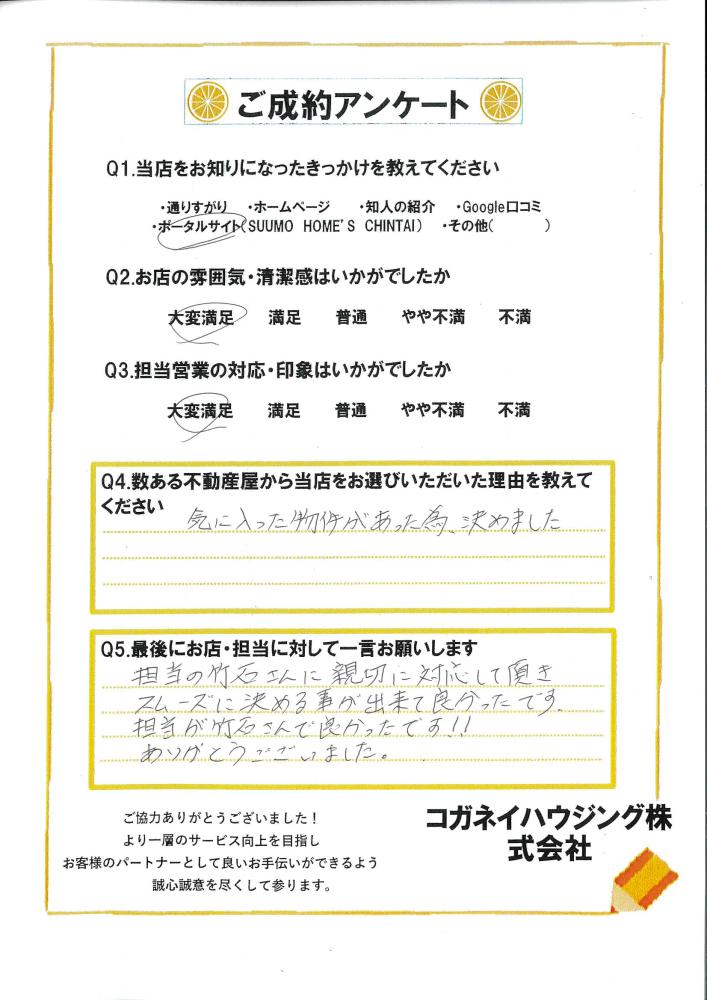 ご成約アンケート
Q1.当店をお知りになったきっかけを教えてください
・通りすがり ・ホームページ ・知人の紹介 ・Google口コミ
・ポータルサイト(SUUMO HOME'S CHINTAI) ・その他( )
Q2.お店の雰囲気・清潔感はいかがでしたか
大変満足 満足 普通 やや不満 不満
Q3.担当営業の対応・印象はいかがでしたか
大変満足 満足 普通 やや不満 不満
Q4.数ある不動産屋から当店をお選びいただいた理由を教えて
ください
気に入った物件があった為、決めました
Q5.最後にお店・担当に対して一言お願いします
担当の竹石さんに親切に対応して頂き
スムーズに決める事が出来て良かったです。
担当が竹石さんで良かったです!!
ありがとうございました。
ご協力ありがとうございました！
より一層のサービス向上を目指し
お客様のパートナーとして良いお手伝いができるよう
誠心誠意を尽くして参ります。
コガネイハウジング株
式会社